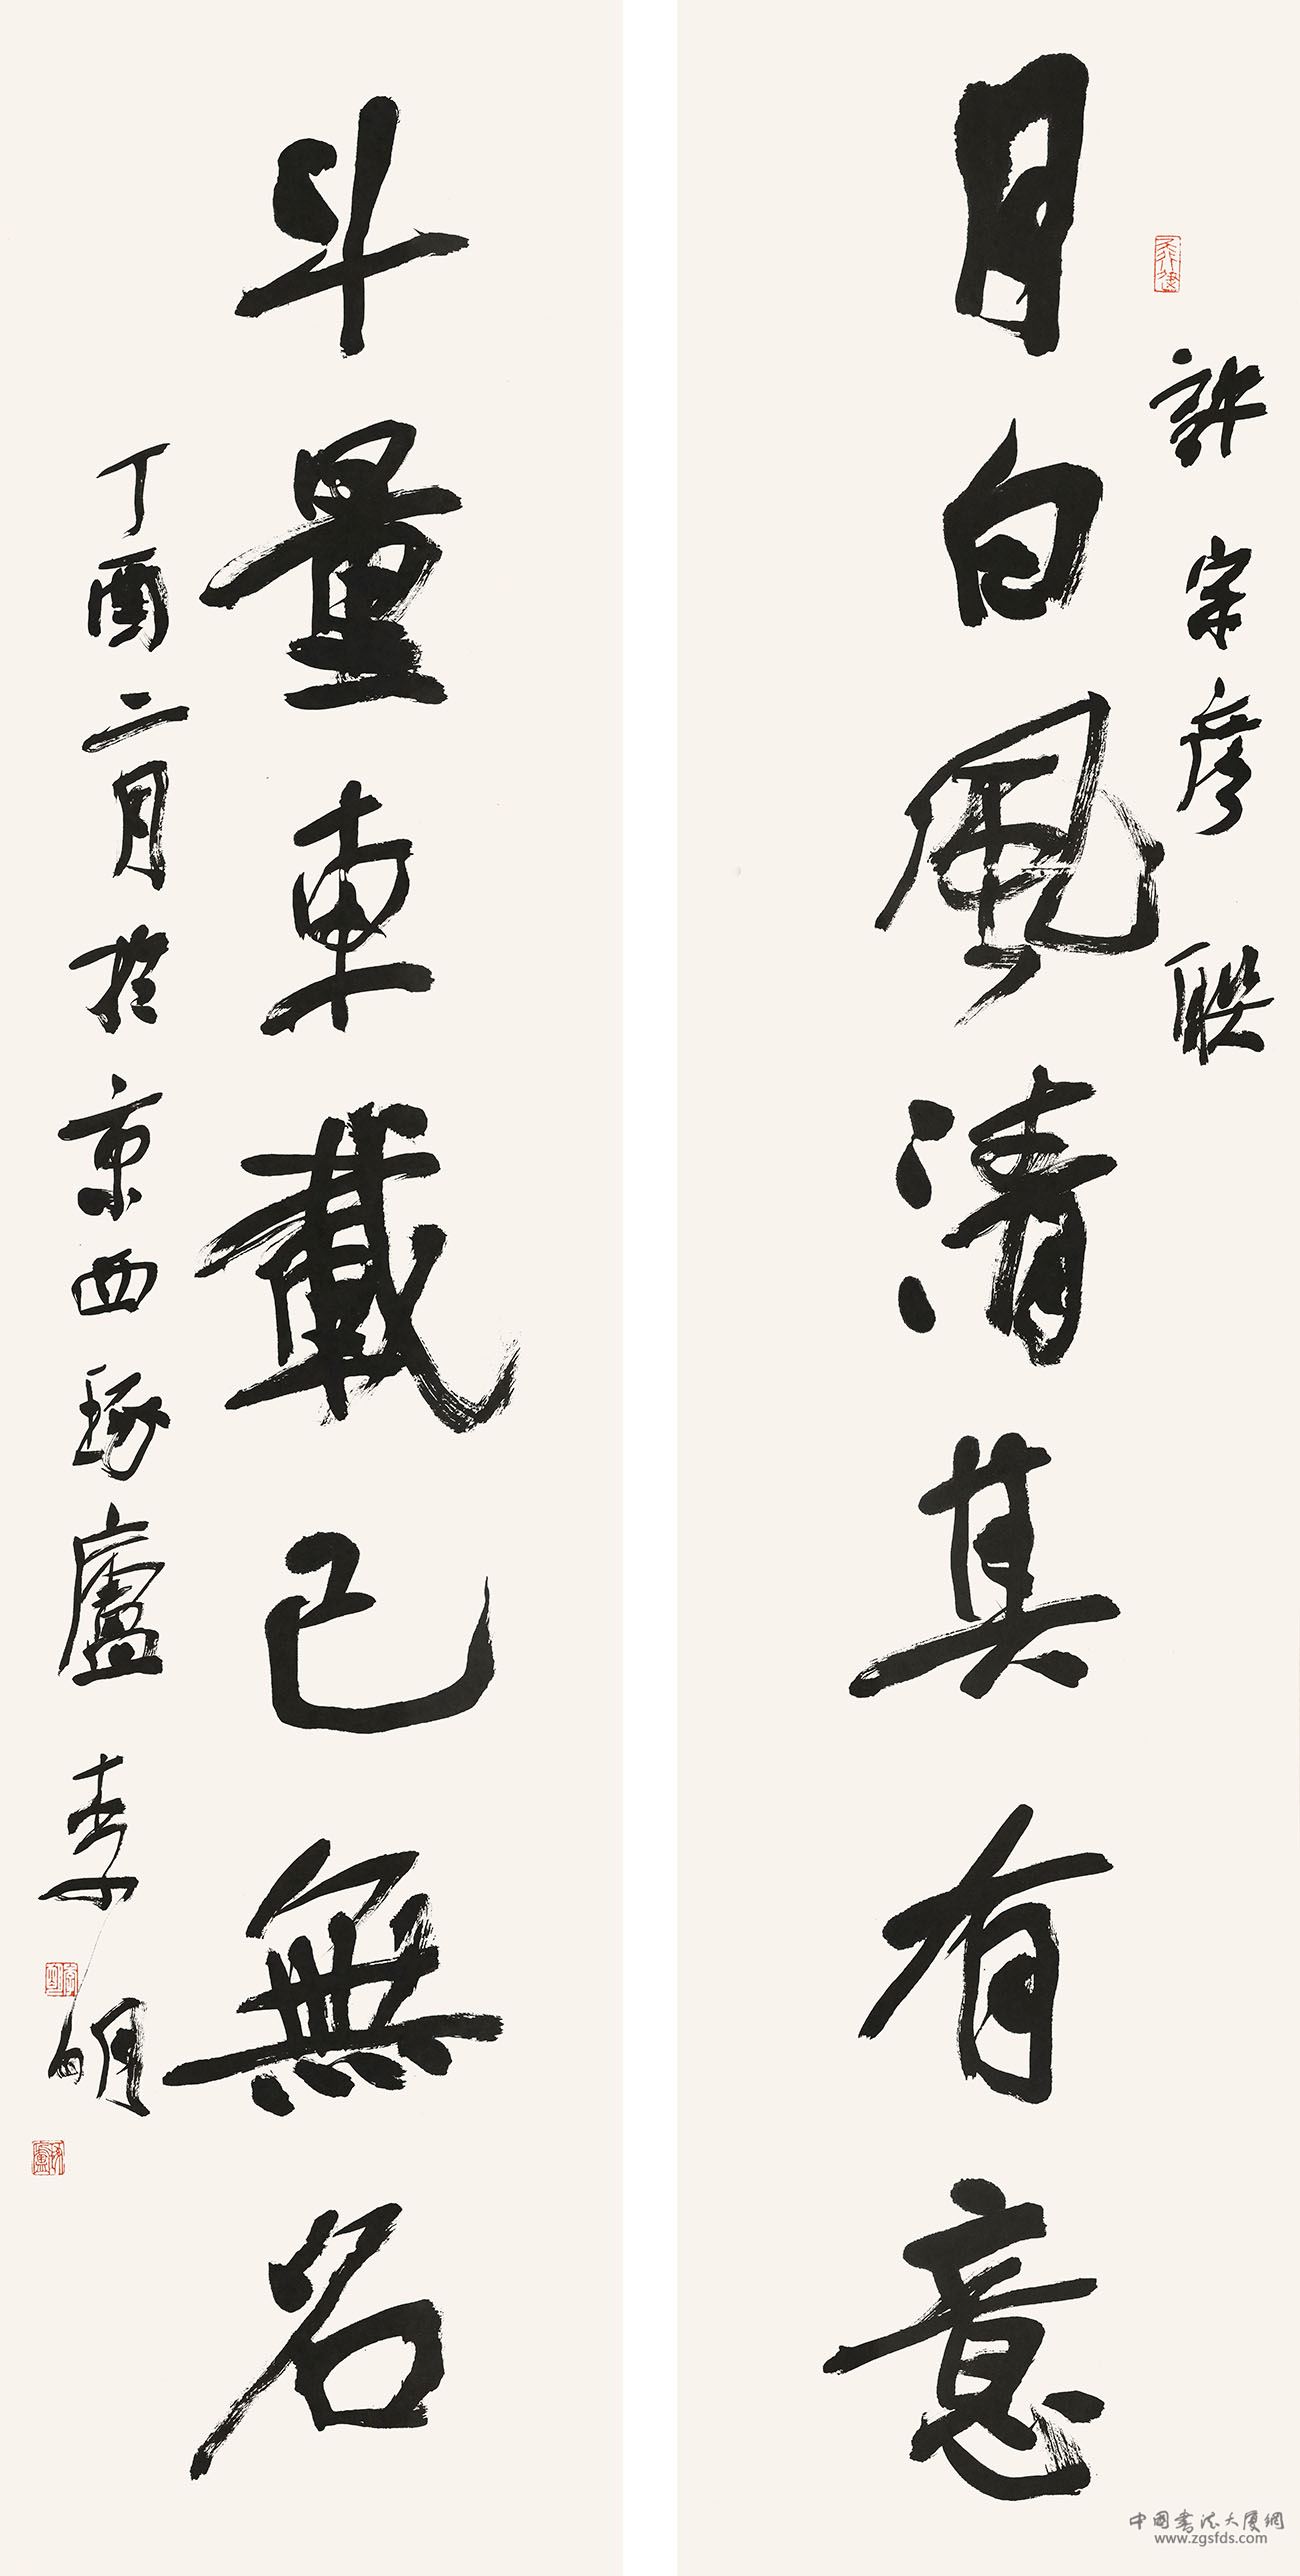 許宗彦聯
月白風清其有意
斗量車載已無名
丁酉二月於京西琢廬李明
中国书法大厦網
www.zgsfds.com